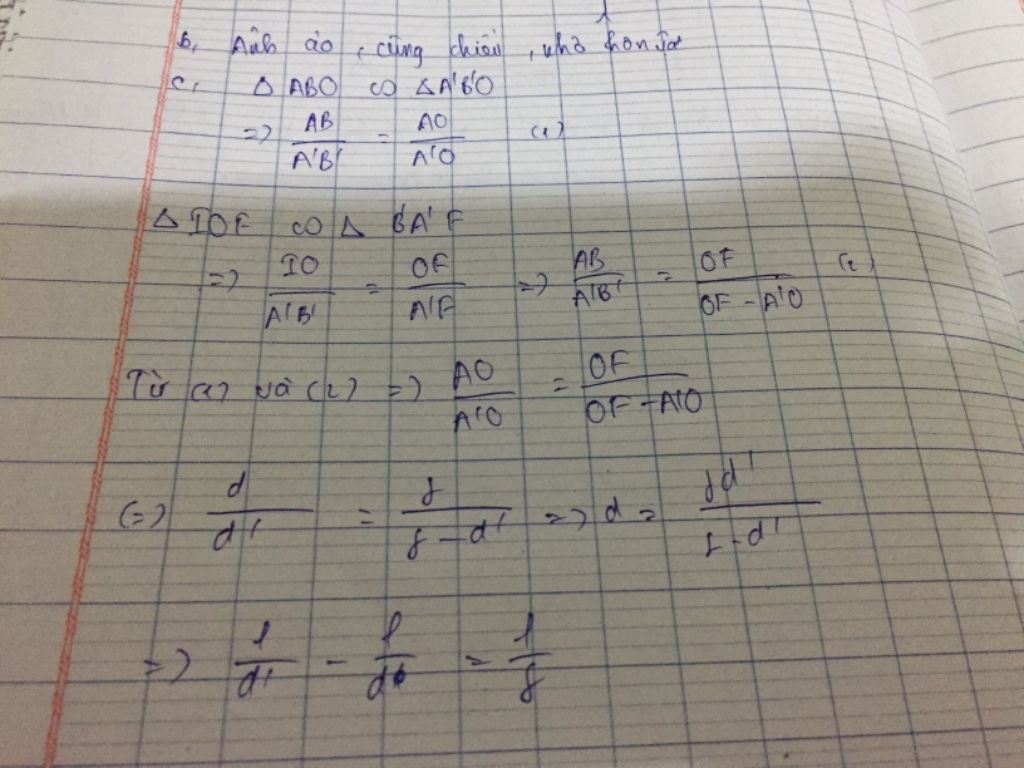 b, Ảnh ảo, cùng chiều, nhỏ hơn vật
c, Δ ABO ∽ Δ A'B'O
=> AB/A'B' = AO/A'O (1)
Δ IOF ∽ Δ B'A'F
=> IO/A'B' = OF/A'F => AB/A'B' = OF/(OF - A'O) (2)
Từ (1) và (2) => AO/A'O = OF/(OF - A'O)
(=) d/d' = f/(f - d') => d = fd'/(f - d')
=> 1/d' - 1/d = 1/f